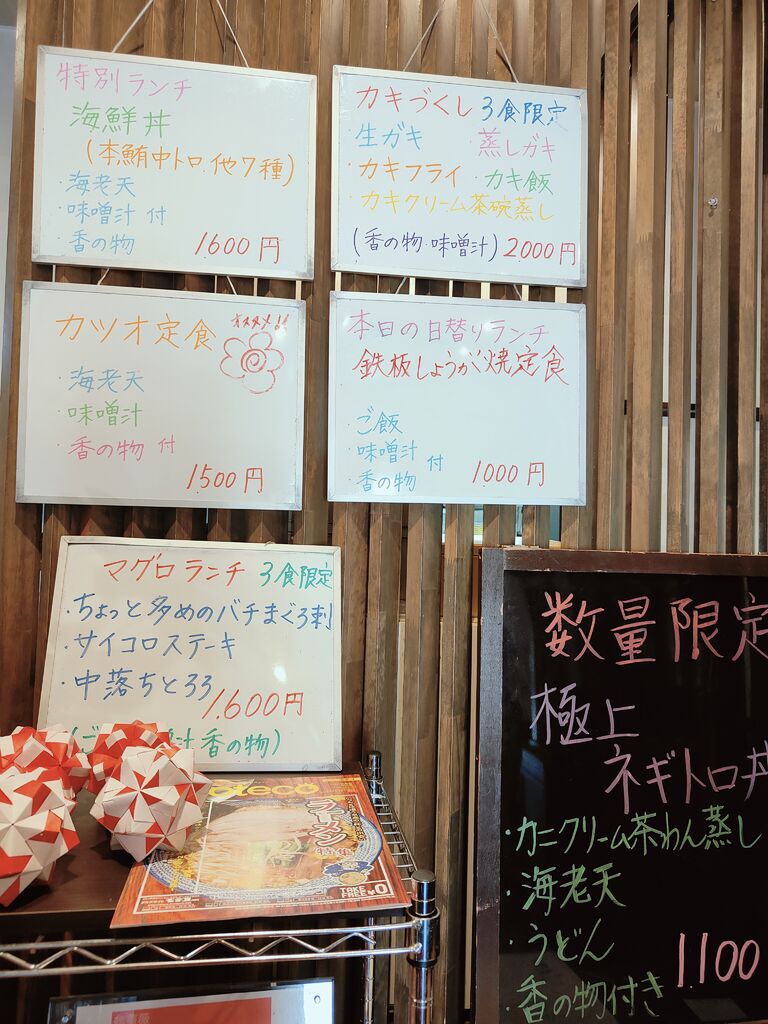 特別ランチ
海鮮丼
(本鮪中トロ.他7種)
・海老天
・味噌汁 付
・香の物
1600円
カキづくし 3食限定
・生ガキ ・蒸しガキ
・カキフライ ・カキ飯
・カキクリーム茶碗蒸し
(香の物・味噌汁) 2000円
カツオ定食
オススメ!!
・海老天
・味噌汁
・香の物 付
1500円
本日の日替りランチ
鉄板しょうが焼定食
・ご飯
・味噌汁 付
・香の物
1000円
マグロランチ 3食限定
・ちょっと多めのバチまぐろ刺
・サイコロステーキ
・中落ちとろろ
1.600円
(ご 汁 香の物)
oteco
ラーメン
特集
TAKE
FREE ¥0
数量限定
極上
ネギトロ丼
・カニクリーム茶わん蒸し
・海老天
・うどん
・香の物付き
1100